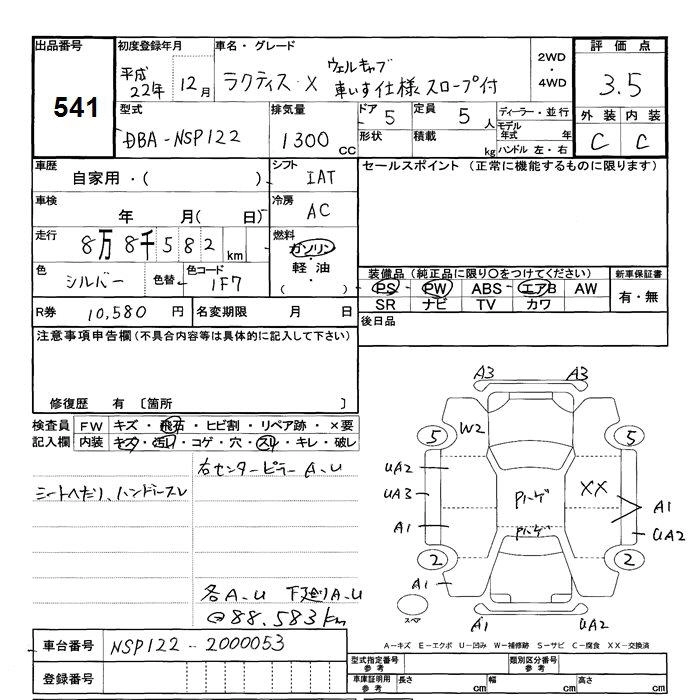 出品番号 初度登録年月 車名・グレード 評価点
541
平成22年 12月
ラクティス X ウェルキャブ
車いす仕様 スロープ付
2WD ・ 4WD
3.5
型式 排気量 ドア 5 定員 5人
ディーラー・並行
モデル年式 年
ハンドル 左・右
外装 内装
C C
DBA-NSP122 1300CC 形状 積載 kg
車歴 自家用・( ) シフト IAT
セールスポイント (正常に機能するものに限ります)
車検 年 月( 日) 冷房 AC
走行 8万8千582km 燃料 ガソリン・軽油 ( )
色 シルバー 色替 色コード 1F7
装備品(純正品に限り○をつけてください) 新車保証書
PS PW ABS エアB AW 有・無
SR ナビ TV カワ
R券 10,580円 名変期限 月 日
後日品
注意事項申告欄(不具合内容等は具体的に記入して下さい)
修復歴 有 〔箇所 〕
検査員 FW キズ・飛石・ヒビ割・リペア跡・×要
記入欄 内装 キズ・汚れ・コゲ・穴・スリ・キレ・破レ
右センターピラーA.U
シートへたり、ハンドルスレ
各A.U 下廻りA.U
@88.583km
A3 A3
5 W2 5
UA2
UA3 Pハゲ XX A1
A1 Pハゲ UA2
2 2
A1
スペア A1 UA2
車台番号 NSP122-2000053
A-キズ E-エクボ U-凹み W-補修跡 S-サビ C-腐食 XX-交換済
登録番号
型式指定番号 参考 類別区分番号 参考
車庫証明用 参考 長さ cm 幅 cm 高さ cm